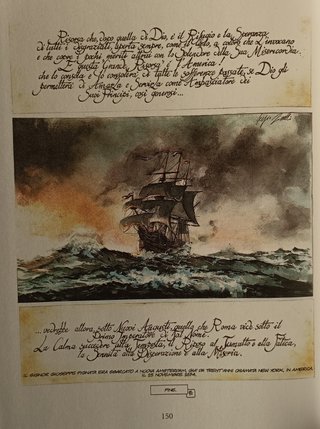 Risorsa che, dopo quella di Dio, è il Rifugio e la Speranza
di tutti i Disgraziati, aperta sempre, come il Cielo, a coloro che L'invocano
e che copre i pochi meriti altrui con lo Splendore della Sua Misericordia.
E questa Grande Risorsa è l'America!
che lo consola e lo consolerà di tutte le sofferenze passate, se Dio gli
permetterà di Amarla e Servirla come Ambasciatore dei
Suoi Principi, così generosi...
...vedrete allora, sotto Nuovi Augusti, quello che Roma vide sotto il
Primo Imperatore di tal Nome.
La Calma succedere alla Tempesta, il Riposo al Tumulto e alla Fatica,
la Sanità alla Disperazione e alla Miseria.
IL SIGNOR GIUSEPPE PIGNATA ERA SBARCATO A NUOVA AMSTERDAM, GIÀ DA TRENT'ANNI CHIAMATA NEW YORK, IN AMERICA
IL 15 NOVEMBRE 1694.
FINE.
150